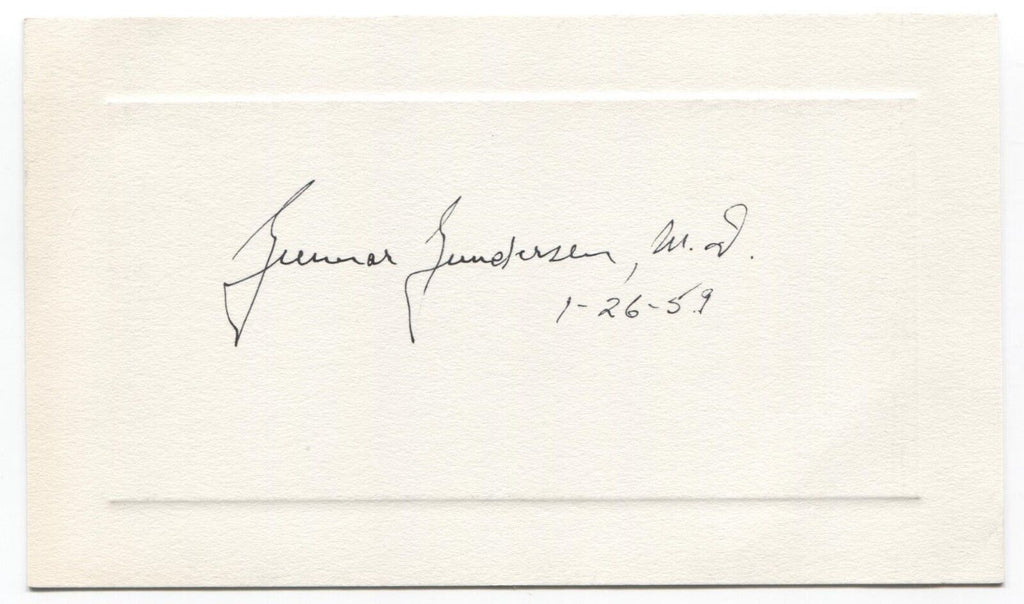 Gunnar Gundersen, M.D.
1-26-59